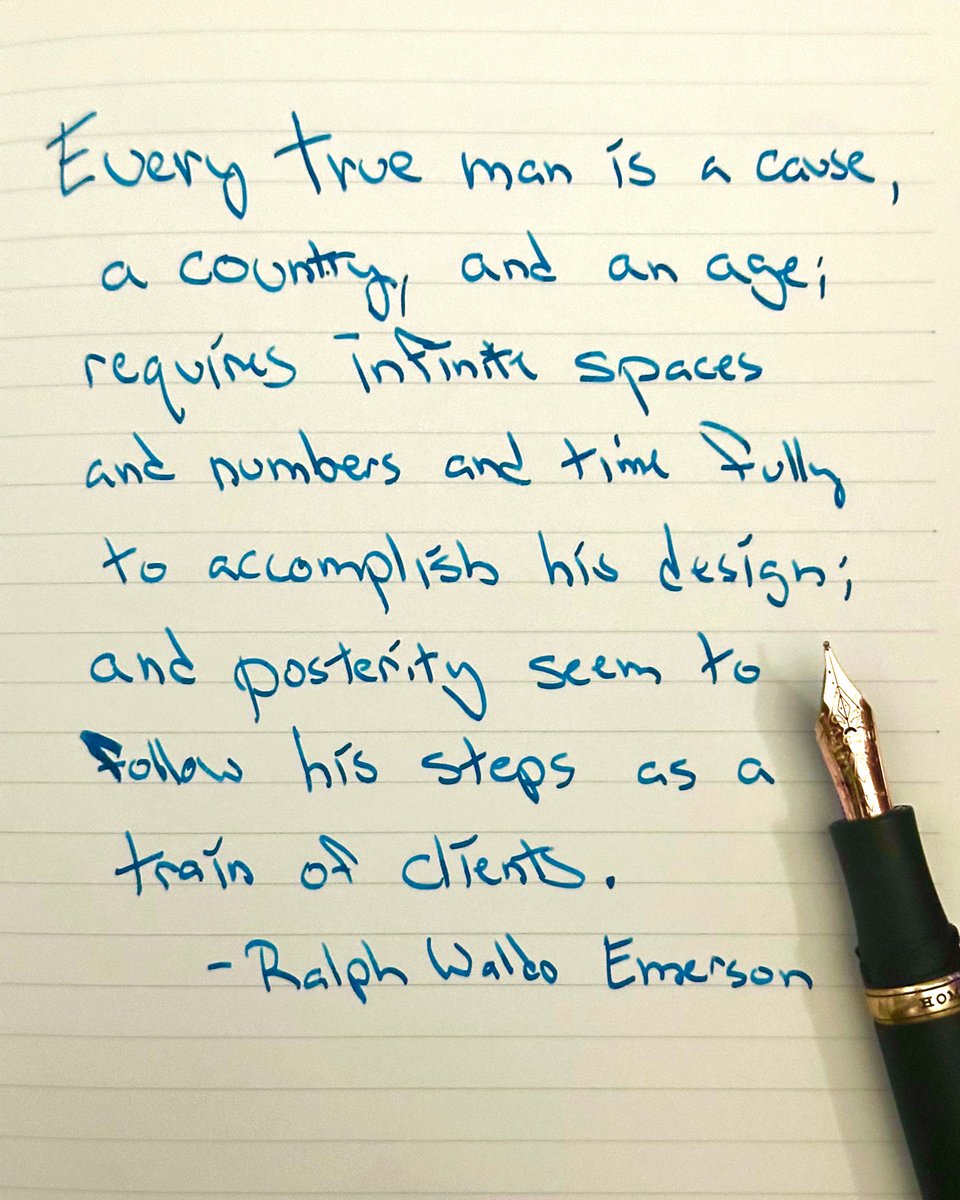 Every true man is a cause,
a country, and an age;
requires infinite spaces
and numbers and time fully
to accomplish his design;
and posterity seem to
follow his steps as a
train of clients.
- Ralph Waldo Emerson
HO